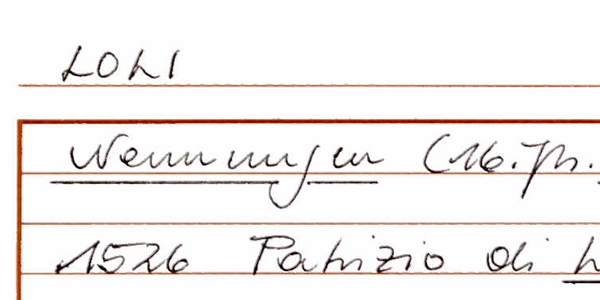 LOLI
Nennungen (16. Jh.
1526 Patrizio di L